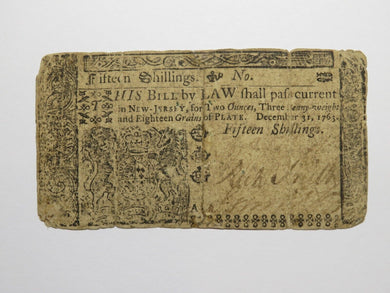 Fifteen Shillings. No.
THIS BILL by LAW shall pass current
in NEW-JERSEY, for Two Ounces, Three Penny-weight
and Eighteen Grains of PLATE. December 31, 1763.
Fifteen Shillings.
Smith
A